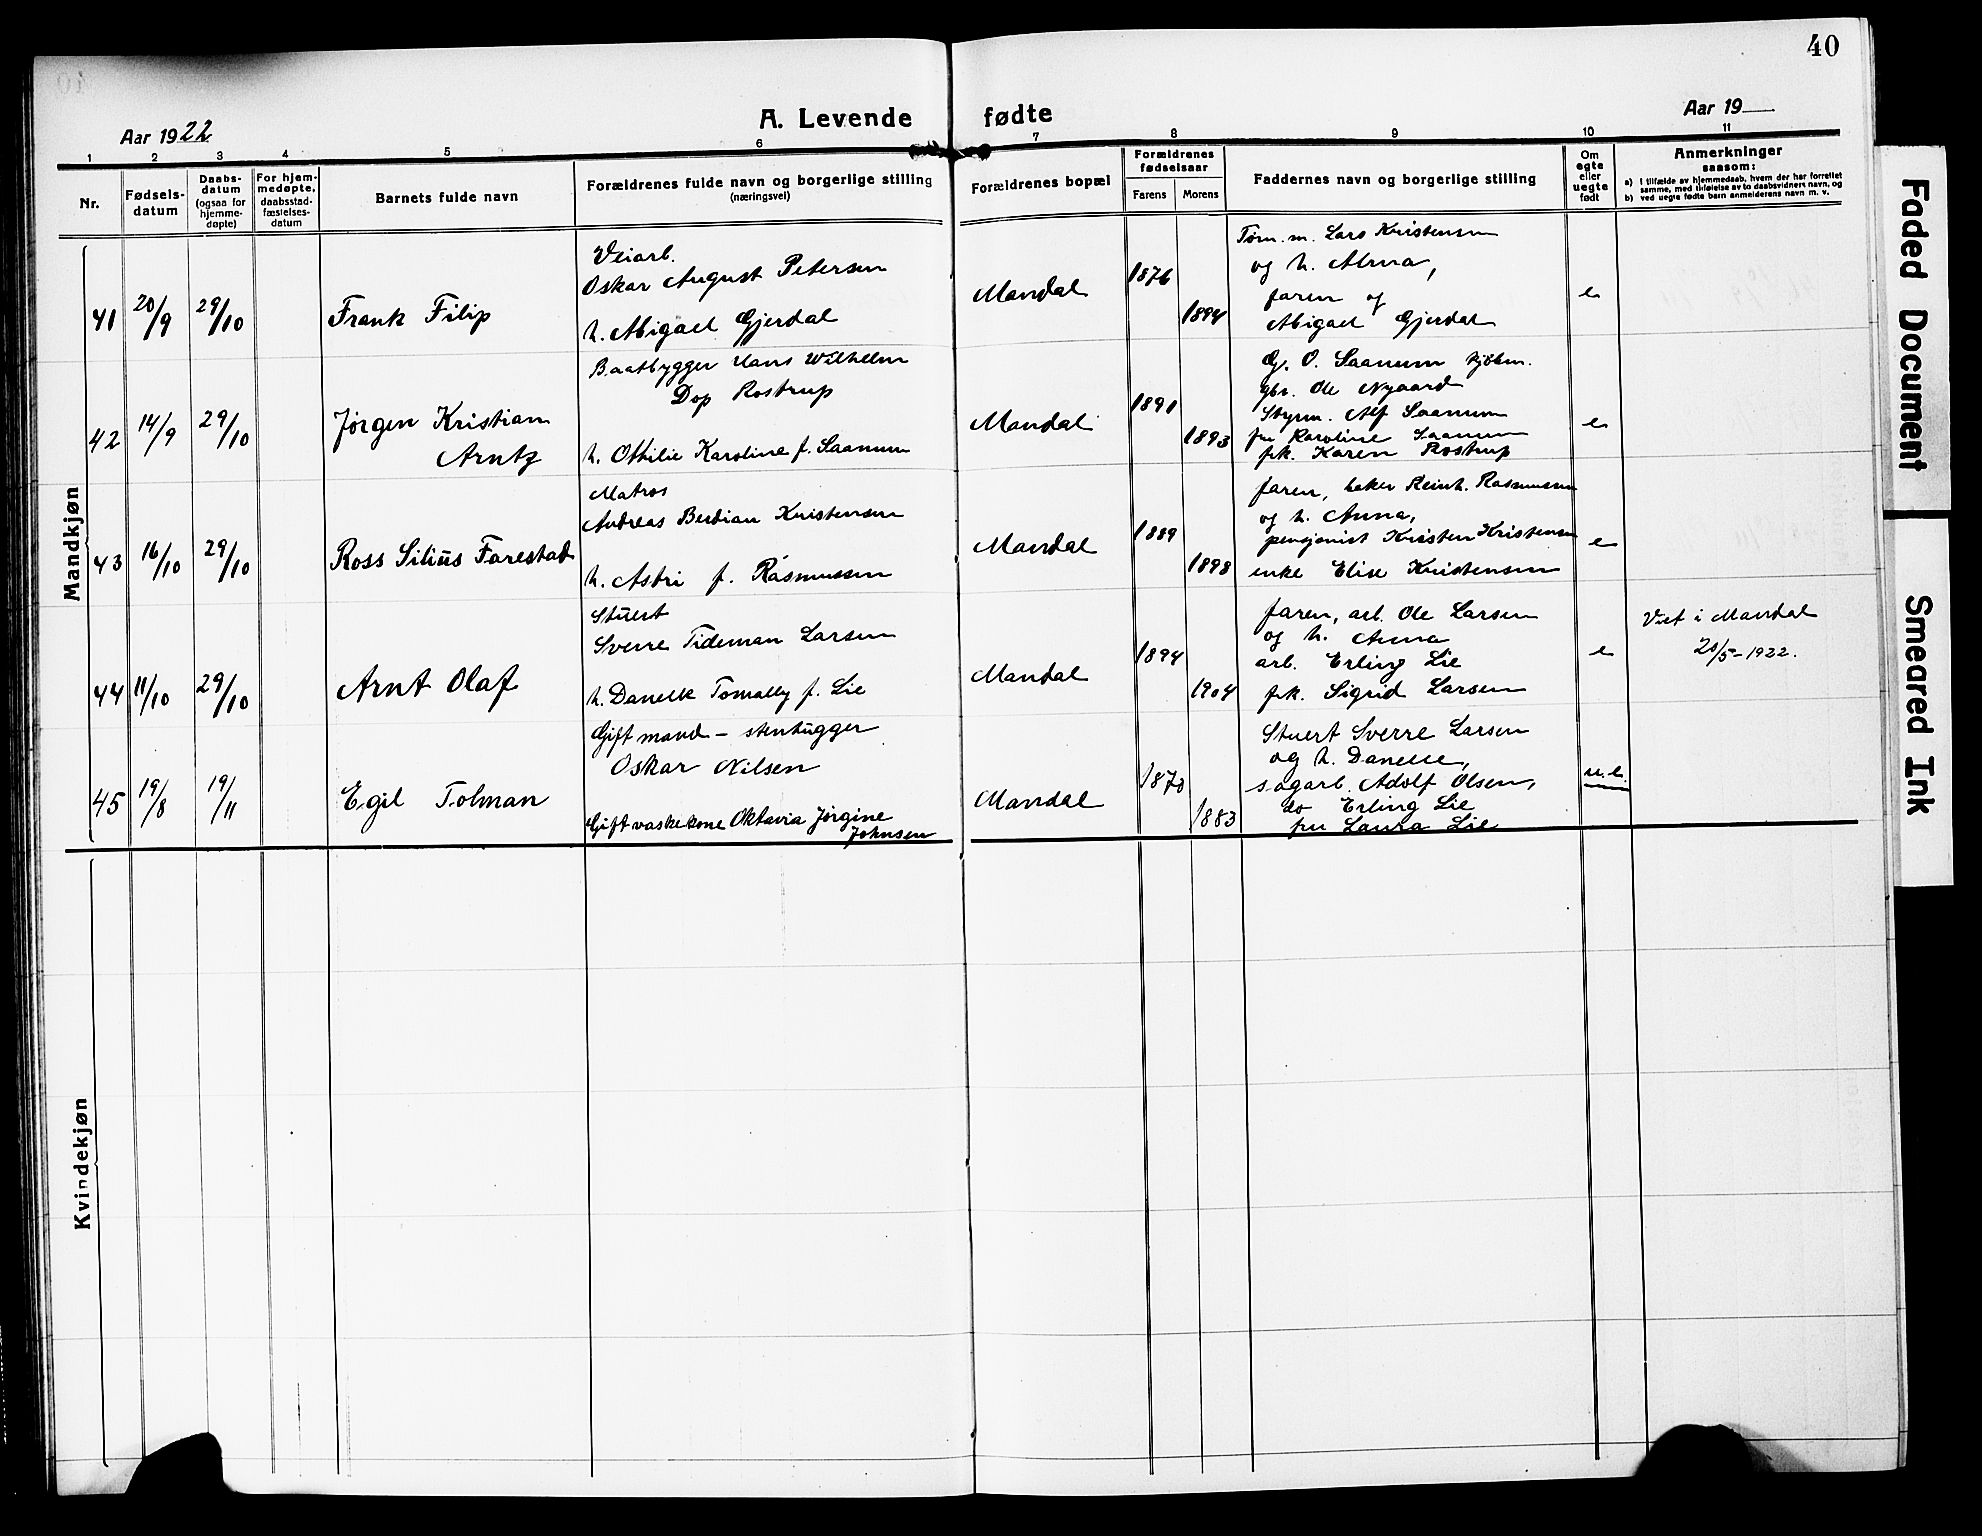 40
A. Levende fødte
Aar 1922
Aar 19
1 2 3 4 5 6 7 8 9 10 11
Nr.
Fødsels-
datum
Daabs-
datum
(ogsaa for
hjemme-
døpte)
For hjem-
medøpte,
daabsstad-
fæstelses-
datum
Barnets fulde navn
Forældrenes fulde navn og borgerlige stilling
(næringsvei)
Forældrenes bopæl
Forældrenes
fødselsaar
Farens Morens
Faddernes navn og borgerlige stilling
Om
egte
eller
uegte
født
Anmerkninger
saasom:
a) i tilfælde av hjemmedaab, hvem der har forrettet
samme, med tilføielse av to daabsvidners navn, og
b) ved uegte fødte barn anmelderens navn m. v.
Mandkjøn
41 20/9 29/10
Frank Filip
Veiarb.
Oskar August Petersen
h. Abigael Gjerdal
Mandal
1876
1894
Tøm. m. Lars Kristensen
og h. Alma,
faren og
Abigael Gjerdal
e
42 14/9 29/10
Jørgen Kristian
Arntz
Baatbygger Hans Wilhelm
Dop Rostrup
h. Othilie Karoline f. Saanum
Mandal
1891
1893
G. O. Saanum kjøbm.
gbr. Ole Nygaard
Styrm. Alf Saanum
fru Karoline Saanum
frk. Karen Rostrup
e
43 16/10 29/10
Ross Silius Farestad
Matros
Andreas Berdian Kristensen
h. Astri f. Rasmussen
Mandal
1889
1898
faren, baker Reinh. Rasmussen
og h. Anna,
pensjonist Kristen Kristensen
enke Elise Kristensen
e
44 11/10 29/10
Arnt Olaf
Stuert
Sverre Tideman Larsen
h. Danelle Tomally f. Lie
Mandal
1894
1904
faren, arb. Ole Larsen
og h. Anna
arb. Erling Lie
frk. Sigrid Larsen
e
Viet i Mandal
20/5-1922.
45 19/8 19/11
Egil Tolman
Gift mand - stenhugger
Oskar Nilsen
Gift vaskekone Oktavia Jørgine
Johnsen
Mandal
1870
1883
Stuert Sverre Larsen
og h. Danelle,
sagarb. Adolf Olsen,
do Erling Lie
fru Laura Lie
u.e.
Kvindekjøn
Faded Document
Smeared Ink